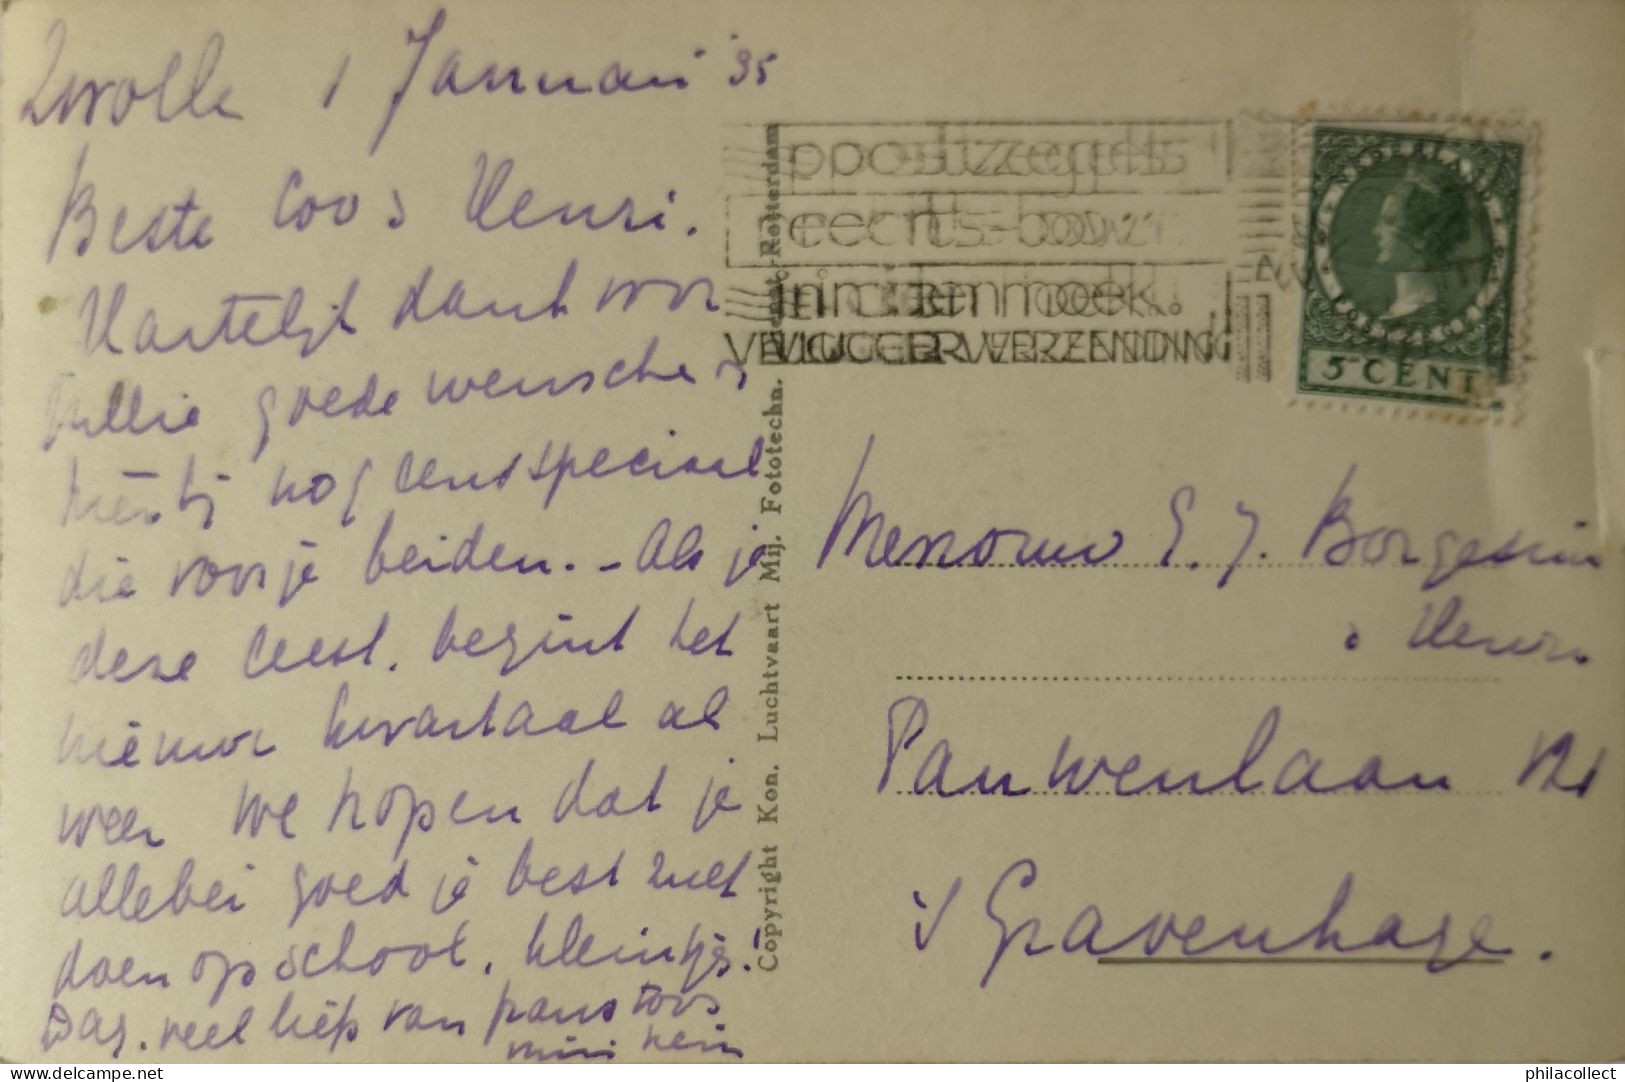 Zwolle 1 Januari '35
Beste Coos Henri.
Hartelijk dank voor
jullie goede wensche
hierbij nog eens speciaal
die voor je beiden. - Als je
deze leest, begint het
nieuwe kwartaal al
weer We hopen dat je
allebei goed je best zult
doen op school, kleintjes!
Dag. veel liefs van Toos
postzegels
rechts-boven
in den hoek.
VLUGGER VERZENDING
NEDERLAND
5 CENT
E. J.
Pauwenlaan
's Gravenhage.
Copyright Kon. Luchtvaart Mij. Fototechn. Dienst, Rotterdam
delcampe.net
philacollect